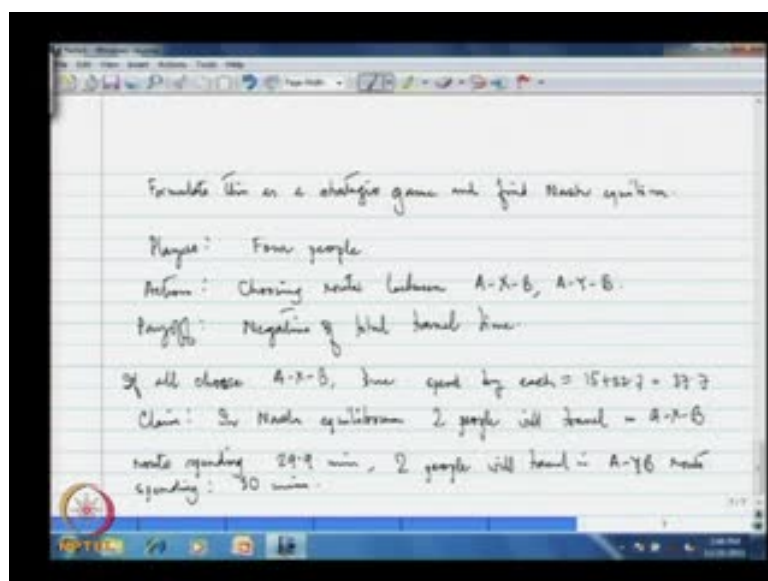 Formulate this as a strategic game and find Nash equilibm.
Players: Four people
Action: Choosing routes between A-X-B, A-Y-B.
Payoff: Negative of total travel time.
If all choose A-X-B, time spent by each = 15+22.7 = 37.7
Claim: In Nash equilibrium 2 people will travel in A-X-B
route spending 29.9 min, 2 people will travel in A-YB route
spending: 30 mins.
NPTEL